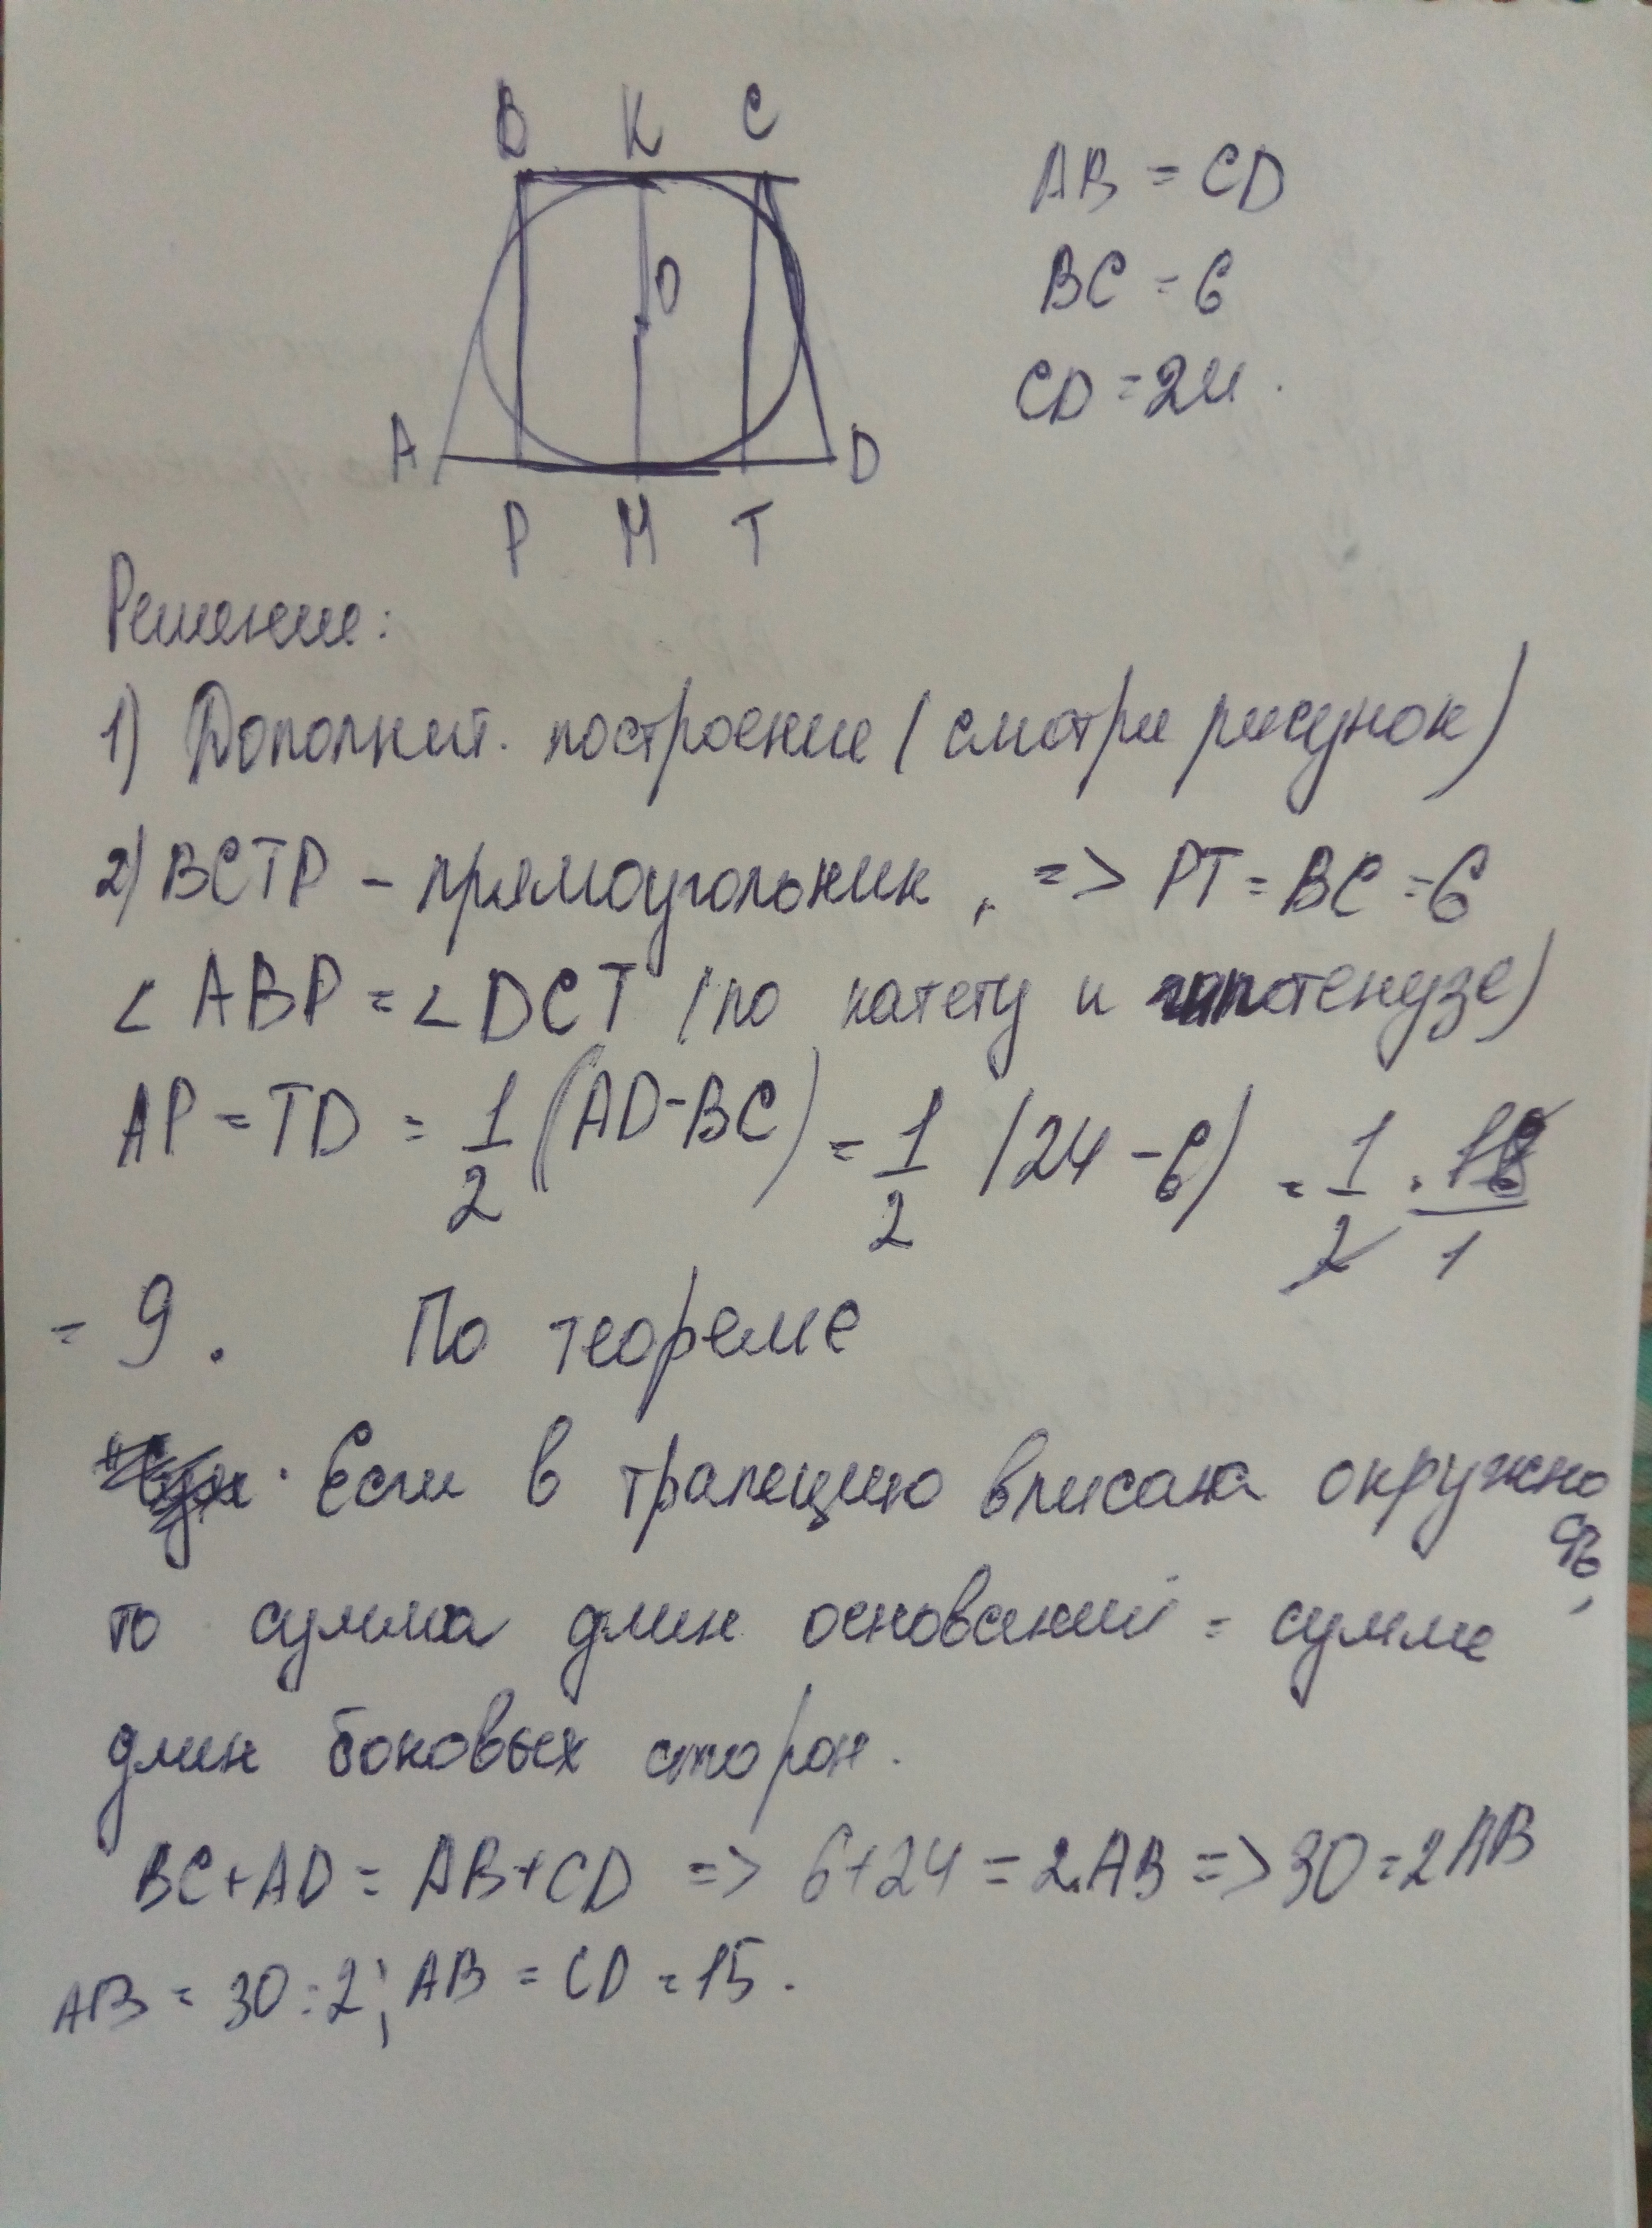 B K C
O
A D
P M T
AB = CD
BC = 6
CD = 24.
Решение:
1) Дополнит. построение (смотри рисунок)
2) BCTP - прямоугольник, => PT = BC = 6
< ABP = < DCT (по катету и гипотенузе)
AP = TD = 1/2 (AD-BC) = 1/2 (24-6) = 1/2 · 18/1
= 9. По теореме
Если в трапецию вписана окружность,
то сумма длин оснований = сумме
длин боковых сторон.
BC+AD = AB+CD => 6+24 = 2.AB => 30 = 2AB
AB = 30:2; AB = CD = 15.